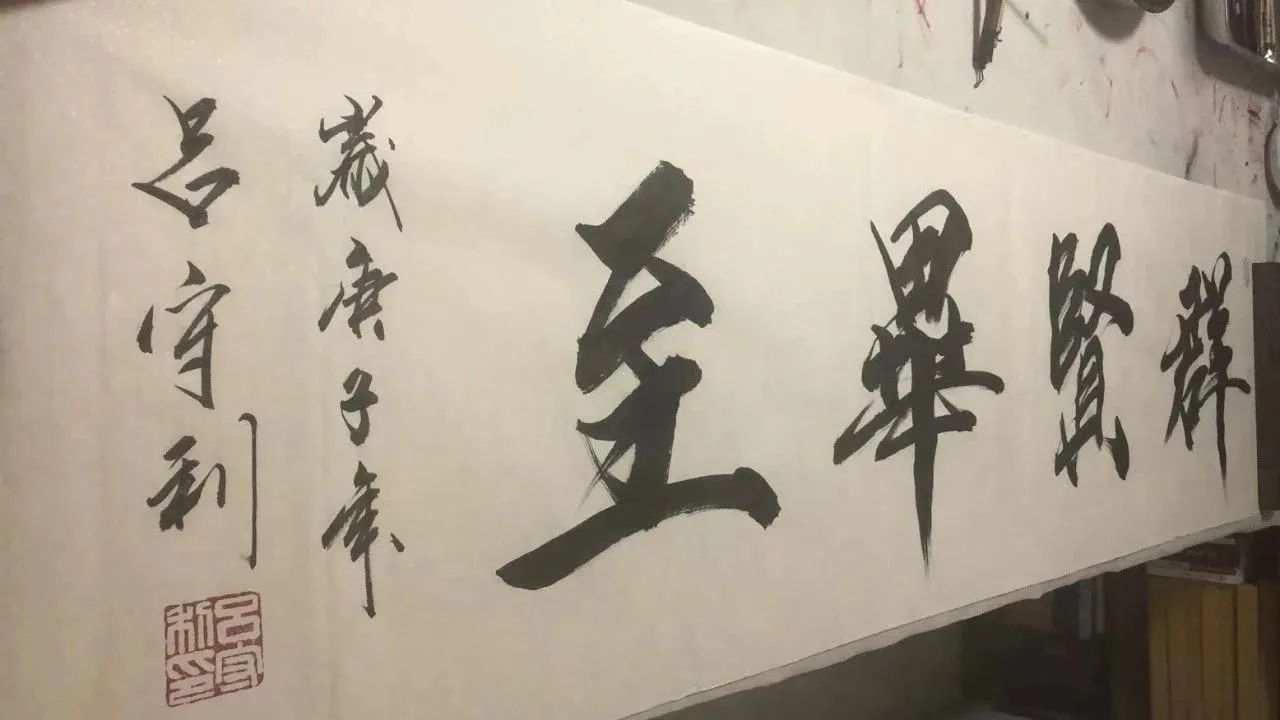 群賢畢至
歲庚子年
吕守利
吕守利印